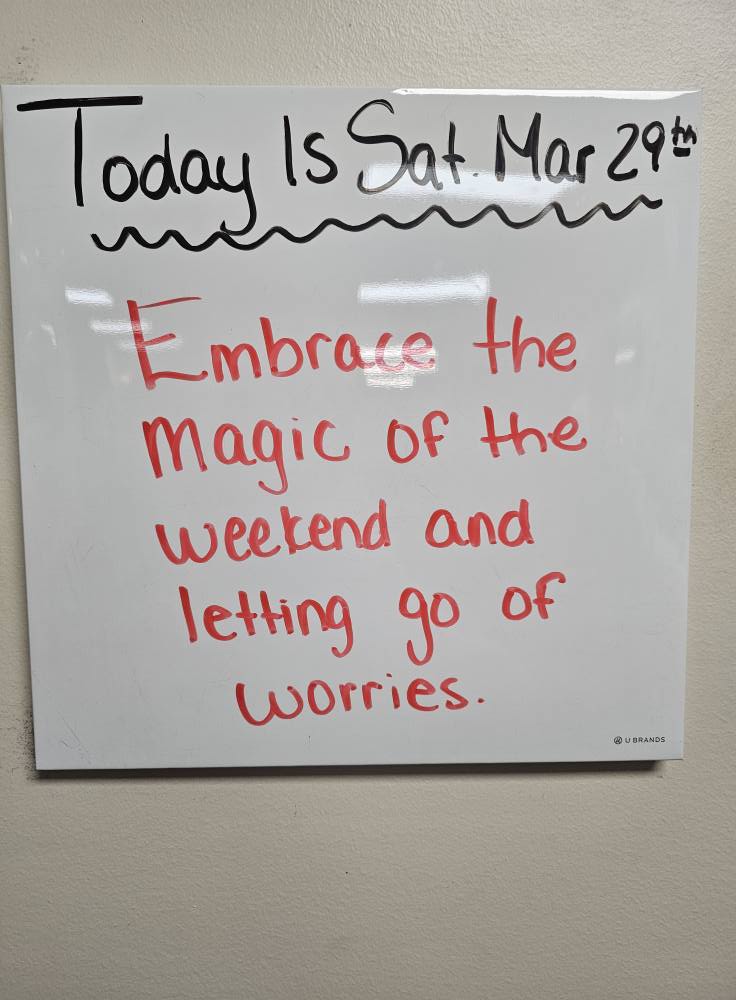 Today Is Sat. Mar 29th
Embrace the
magic of the
weekend and
letting go of
worries.
U BRANDS